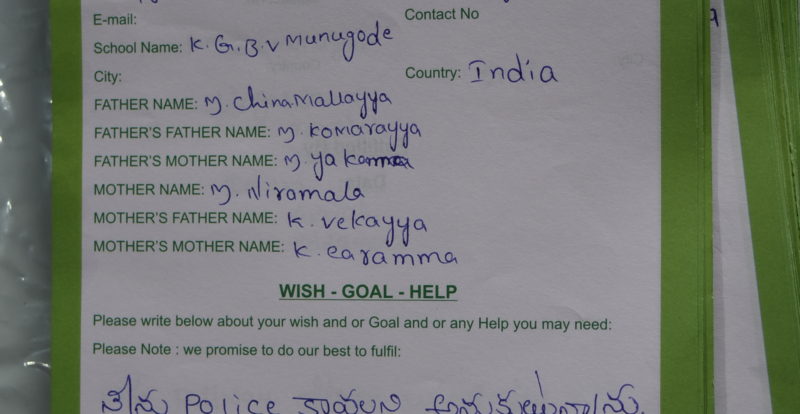 E-mail:
Contact No
School Name: K.G.B.V Munugode
City:
Country: India
FATHER NAME: M. chinaMallayya
FATHER'S FATHER NAME: M. Komarayya
FATHER'S MOTHER NAME: M. Ya
MOTHER NAME: M. Niromala
MOTHER'S FATHER NAME: K. vekayya
MOTHER'S MOTHER NAME: K. earamma
WISH - GOAL - HELP
Please write below about your wish and or Goal and or any Help you may need:
Please Note : we promise to do our best to fulfil:
నేను Police కావాలని అనుకుంటున్నాను.